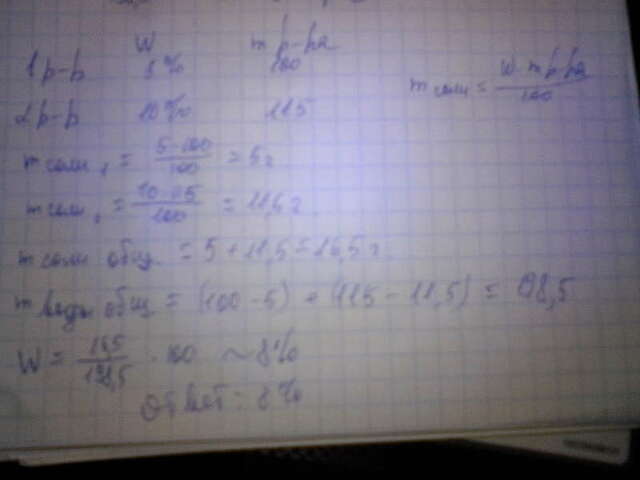 W m р-ра
1 р-р 5% 100
2 р-р 10% 115
m соли = W · m р-ра / 100
m соли 1 = 5 · 100 / 100 = 5 г
m соли 2 = 10 · 115 / 100 = 11,5 г
m соли общ. = 5 + 11,5 = 16,5 г
m воды общ = (100 - 5) + (115 - 11,5) = 198,5
W = 16,5 / 198,5 · 100 ~ 8%
Ответ: 8%